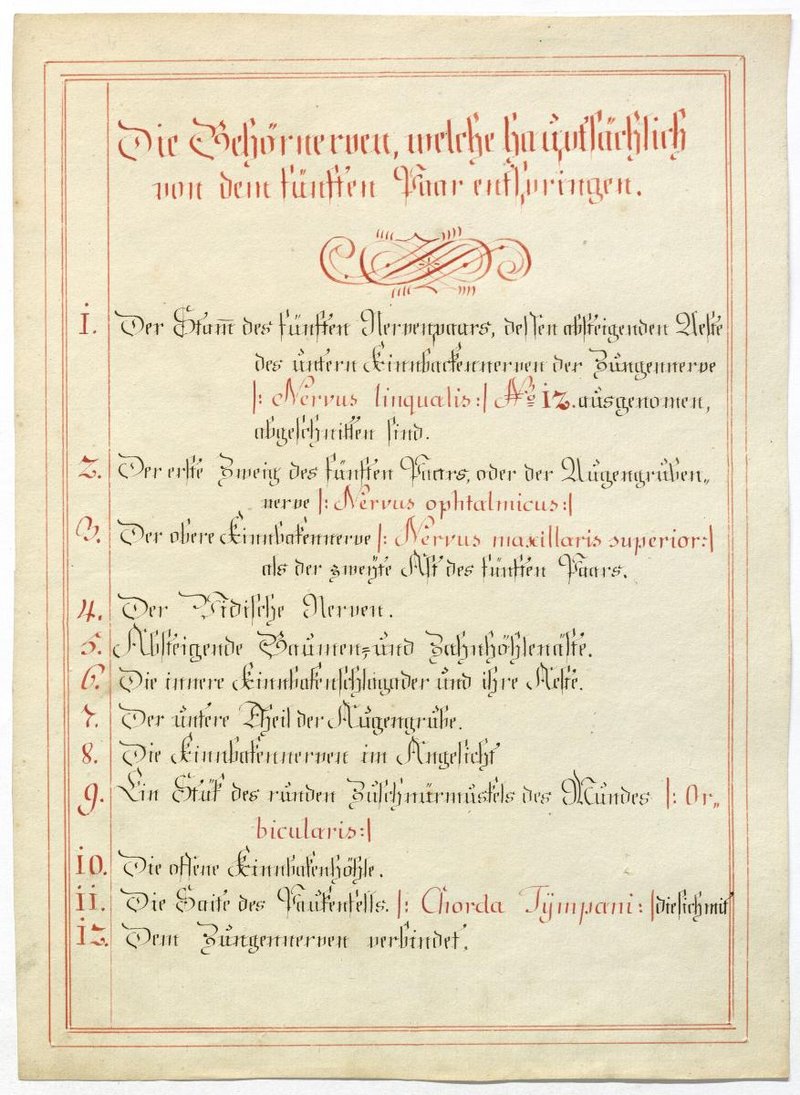 Die Gehörnerven, welche hauptsächlich
von dem fünften Paar entspringen.
1. Der Stam̅ des fünften Nervenpaars, dessen absteigenden Aeste
des untern Kinnbackennerven der Zungennerve
|: Nervus linqualis :| No 12. ausgenomen,
abgeschnitten sind.
2. Der erste Zweig des fünften Paars, oder der Augengruben„
nerve |: Nervus ophtalmicus :|
3. Der obere Kinnbakennerve |: Nervus maxillaris superior :|
als der zweÿte Ast des fünften Paars.
4. Der Vidische Nerven.
5. Absteigende Gaumen- und Zahnhöhlenäste.
6. Die innere Kinnbakenschlagader und ihre Aeste.
7. Der untere Theil der Augengrube.
8. Die Kinnbakennerven im Angesicht
9. Ein Stük des runden Zuschnürmuskels des Mundes |: Or„
bicularis :|
10. Die offene Kinnbakenhöhle.
11. Die Saite des Paukenfells. |: Chorda Tÿmpani : | die sich mit
12. Dem Zungennerven verbindet.